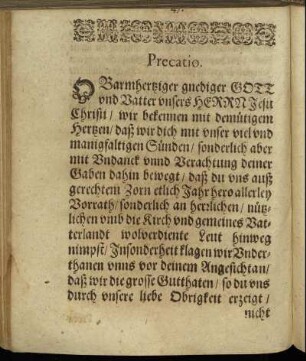 Precatio.
O Barmhertziger gnediger GOTT
vnd Vatter vnsers HERRN Jesu
Christi / wir bekennen mit demütigem
Hertzen / daß wir dich mit vnser viel vnd
manigfaltigen Sünden / sonderlich aber
mit Vndanck vnnd Verachtung deiner
Gaben dahin bewegt / daß du vns auß
gerechtem Zorn etlich Jahr hero allerley
Vorrath / sonderlich an herrlichen / nütz-
lichen vmb die Kirch vnd gemeines Vat-
terlandt wolverdiente Leut hinweg
nimpst / Jnsonderheit klagen wir Vnder-
thanen vnns vor deinem Angesicht an /
daß wir die grosse Gutthaten / so du vns
durch vnsere liebe Obrigkeit erzeigt /
nicht